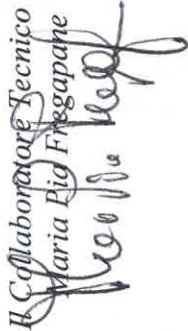 Il Collaboratore Tecnico
Maria Pia Fregapane